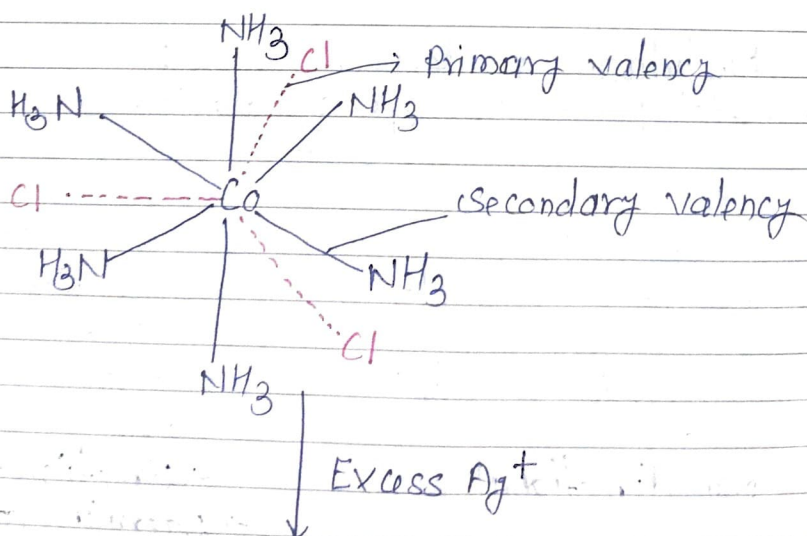 NH3
Cl
Primary valency
H3N
NH3
Cl
Co
Secondary valency
H3N
NH3
Cl
NH3
Excess Ag+